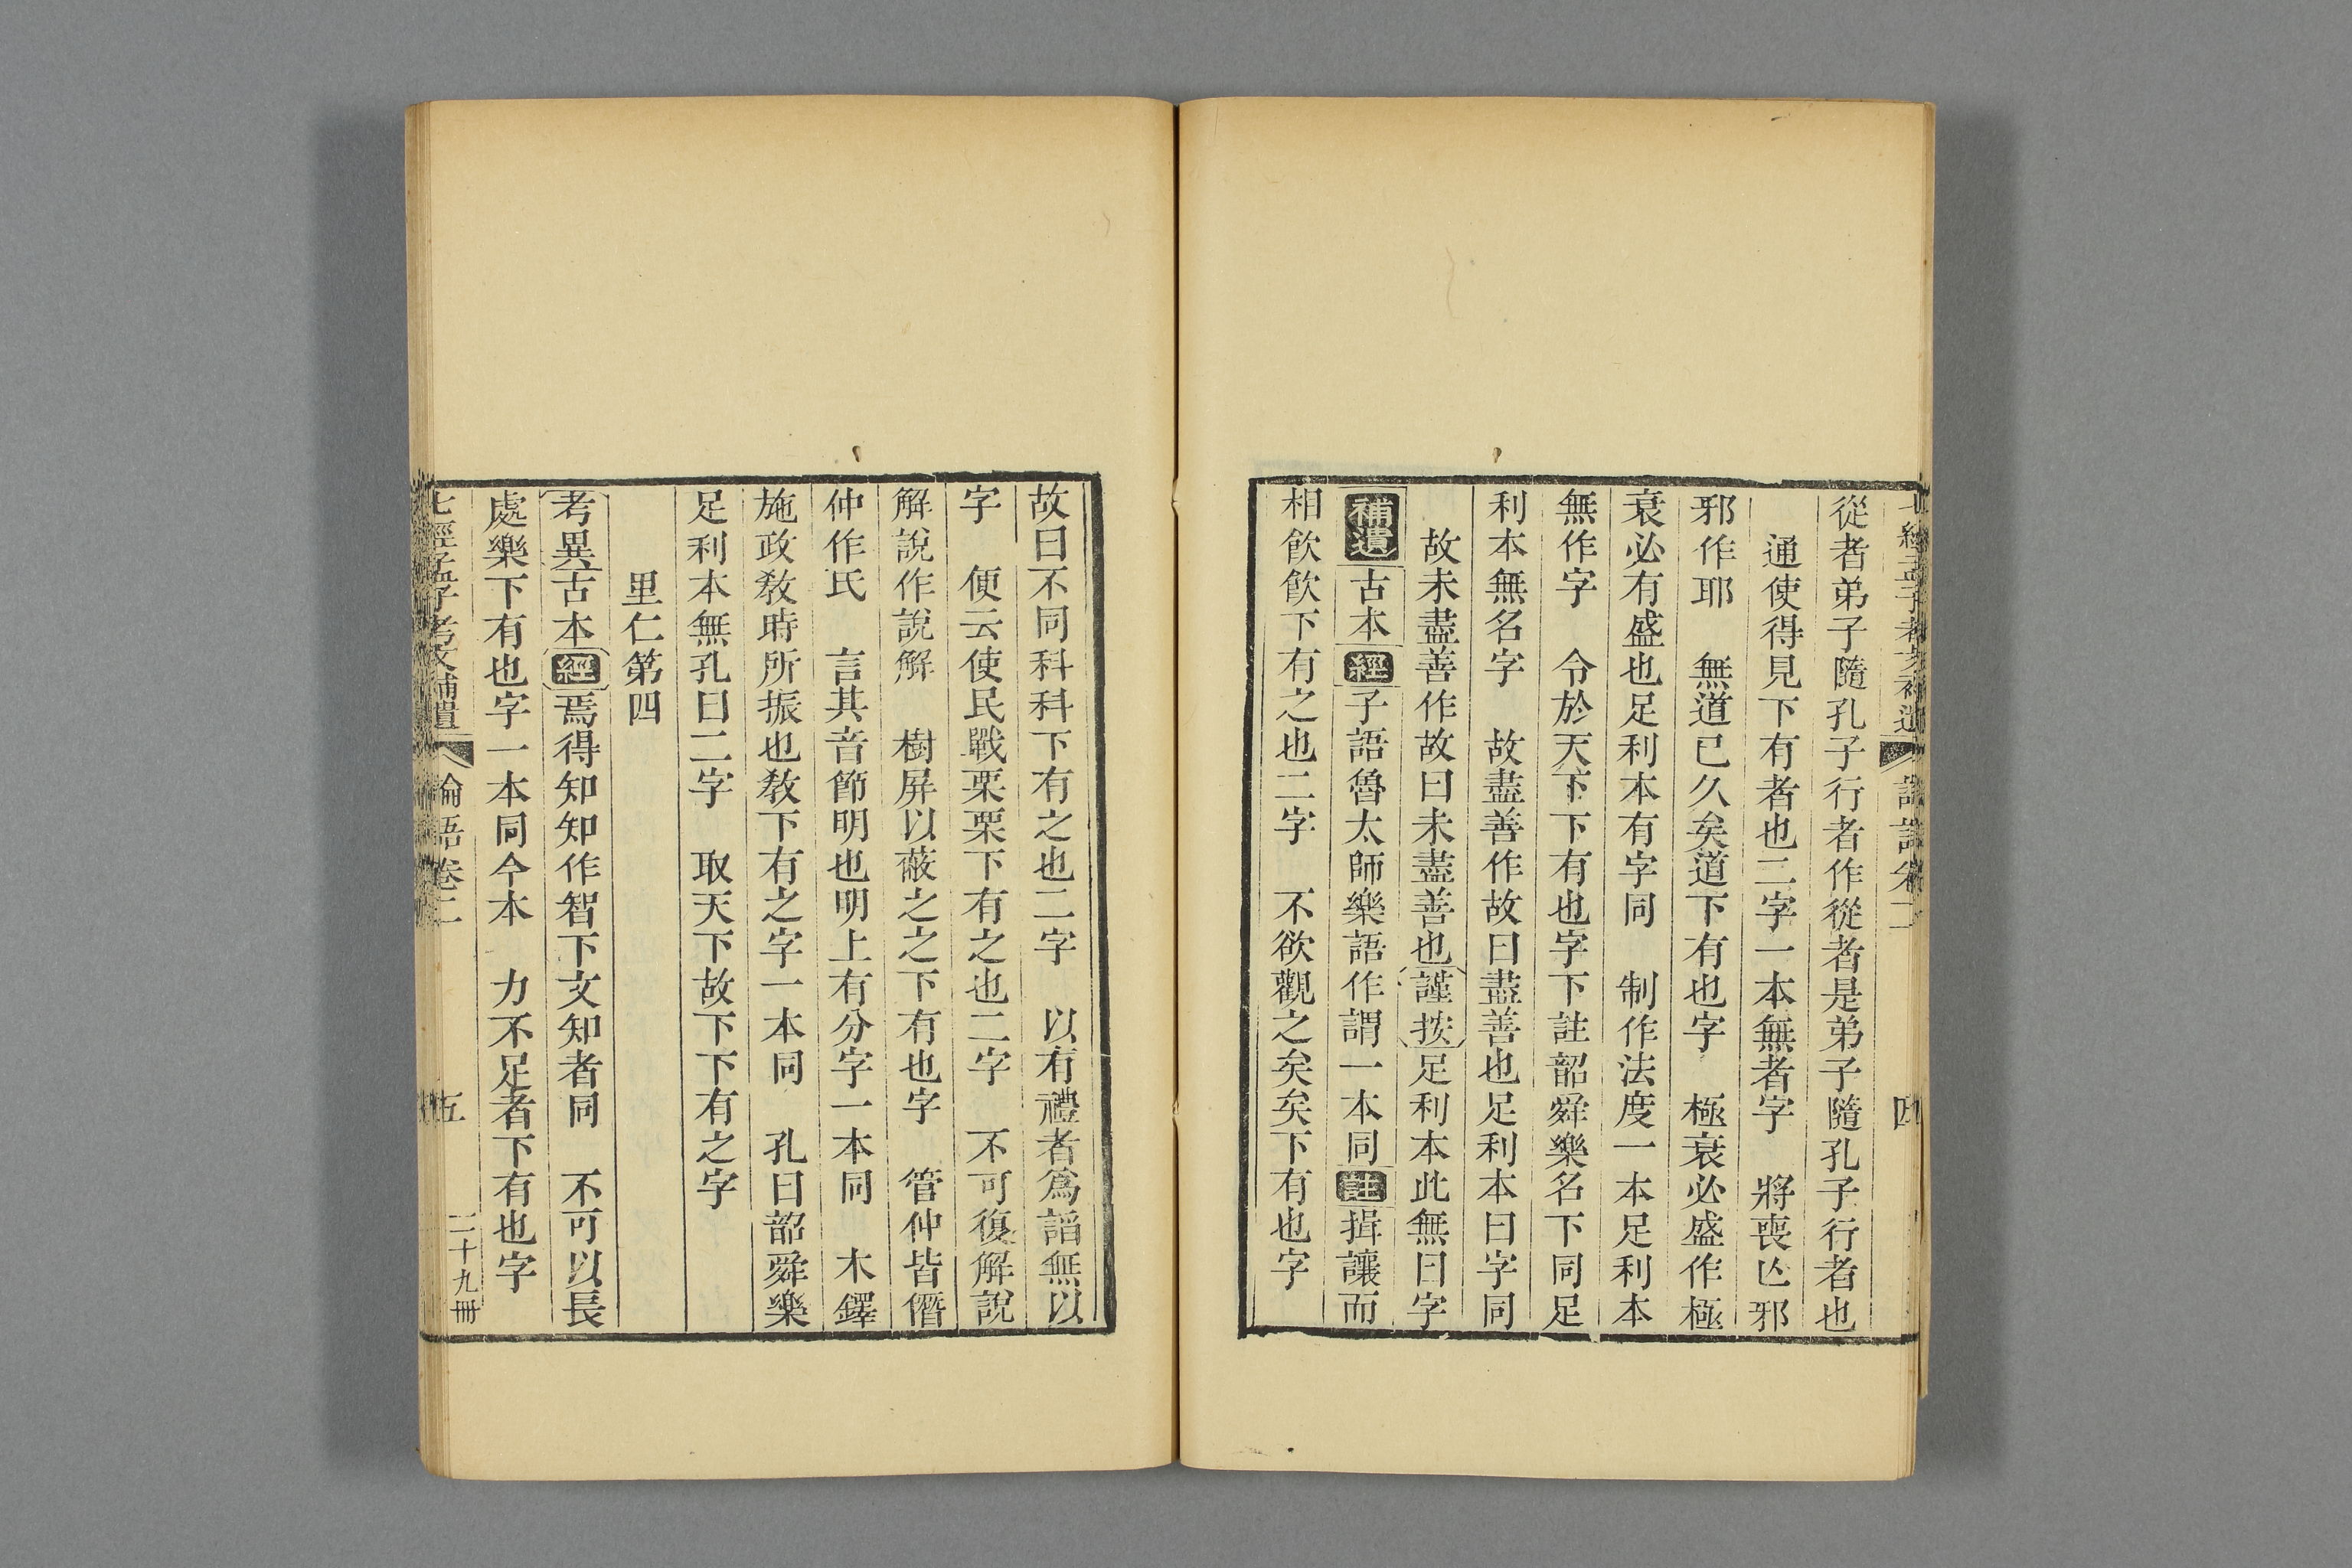 從者弟子隨孔子行者作從者是弟子隨孔子行者也
通使得見下有者也二字一本無者字　將喪亾邪
邪作耶　無道已久矣道下有也字　極衰必盛作極
衰必有盛也足利本有字同　制作法度一本足利本
無作字　令於天下下有也字下註韶舜樂名下同足
利本無名字　故盡善作故曰盡善也足利本曰字同
故未盡善作故曰未盡善也謹按足利本此無曰字
補遺古本經子語魯太師樂語作謂一本同註揖讓而
相飲飲下有之也二字　不欲觀之矣矣下有也字
故曰不同科科下有之也二字　以有禮者爲諂無以
字　便云使民戰栗栗下有之也二字　不可復解說
解說作說解　樹屏以蔽之之下有也字　管仲皆僭
仲作氏　言其音節明也明上有分字一本同　木鐸
施政敎時所振也敎下有之字一本同　孔曰韶舜樂
足利本無孔曰二字　取天下故下下有之字
里仁第四
考異古本經焉得知知作智下文知者同　不可以長
處樂下有也字一本同今本　力不足者下有也字
七經孟子考文補遺　論語卷二　五　二十九冊